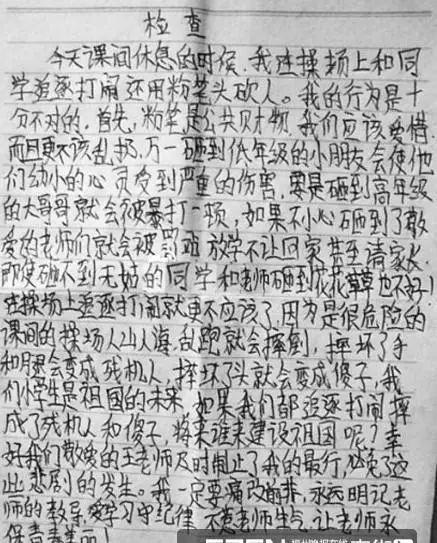 检查
今天课间休息的时候,我在操场上和同
学追逐打闹还用粉笔头砍人。我的行为是十
分不对的,首先,粉笔是公共财物,我们应该爱惜
而且更不该乱扔,万一砸到低年级的小朋友会使他
们幼小的心灵受到严重的伤害,要是砸到高年级
的大哥哥就会被暴打一顿,如果不小心砸到了敬
爱的老师们就会被罚站 放学不让回家甚至请家长
即使砸不到无辜的同学和老师砸到花花草草也不好!
在操场上追逐打闹就更不应该了,因为是很危险的
课间的操场人山人海,乱跑就会摔倒,摔坏了手
和腿会变成残机人,摔坏了头就会变成傻子,我
们小学生是祖国的未来,如果我们都追逐打闹摔
成了残机人和傻子,将来谁来建设祖国呢?幸
好我们敬爱的王老师及时制止了我的最行,避免了这
些悲剧的发生。我一定要痛改前非,永远明记老
师的教导,爱学习守纪律 不惹老师生气,让老师永
保青春美丽!